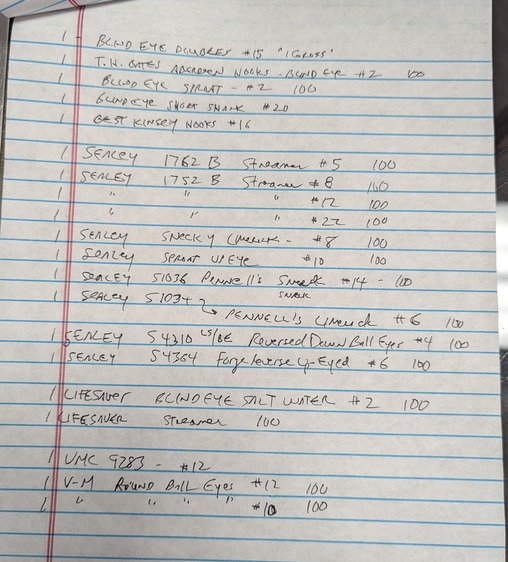 1 - BLIND EYE DOUBLES #15 "1 GROSS"
1 T.H. BATES ABERDEEN HOOKS - BLIND EYE #2 100
1 BLIND EYE SPROAT - #2 100
1 BLIND EYE SHORT SHANK #20
1 BEST KINSEY HOOKS #16
1 SEALEY 1762 B Streamer #5 100
1 SEALEY 1752 B Streamer #8 100
1 " " " #12 100
1 " " " #22 100
1 SEALEY SNECKY Limerick - #8 100
1 SEALEY SPROAT W/EYE #10 100
1 SEALEY S1036 Pennell's Sneck #14 - 100
1 SEALEY S1034 SNECK
PENNELL'S Limerick #6 100
1 SEALEY S4310 LS/DE Reversed Down Ball Eyes #4 100
1 SEALEY S4364 Forge Reverse Up-Eyed #6 100
1 LIFESAVER BLIND EYE SALT WATER #2 100
1 LIFESAVER Streamer 100
1 VMC 9283 - #12
1 V-M Round Ball Eyes #12 100
1 " " " " #10 100